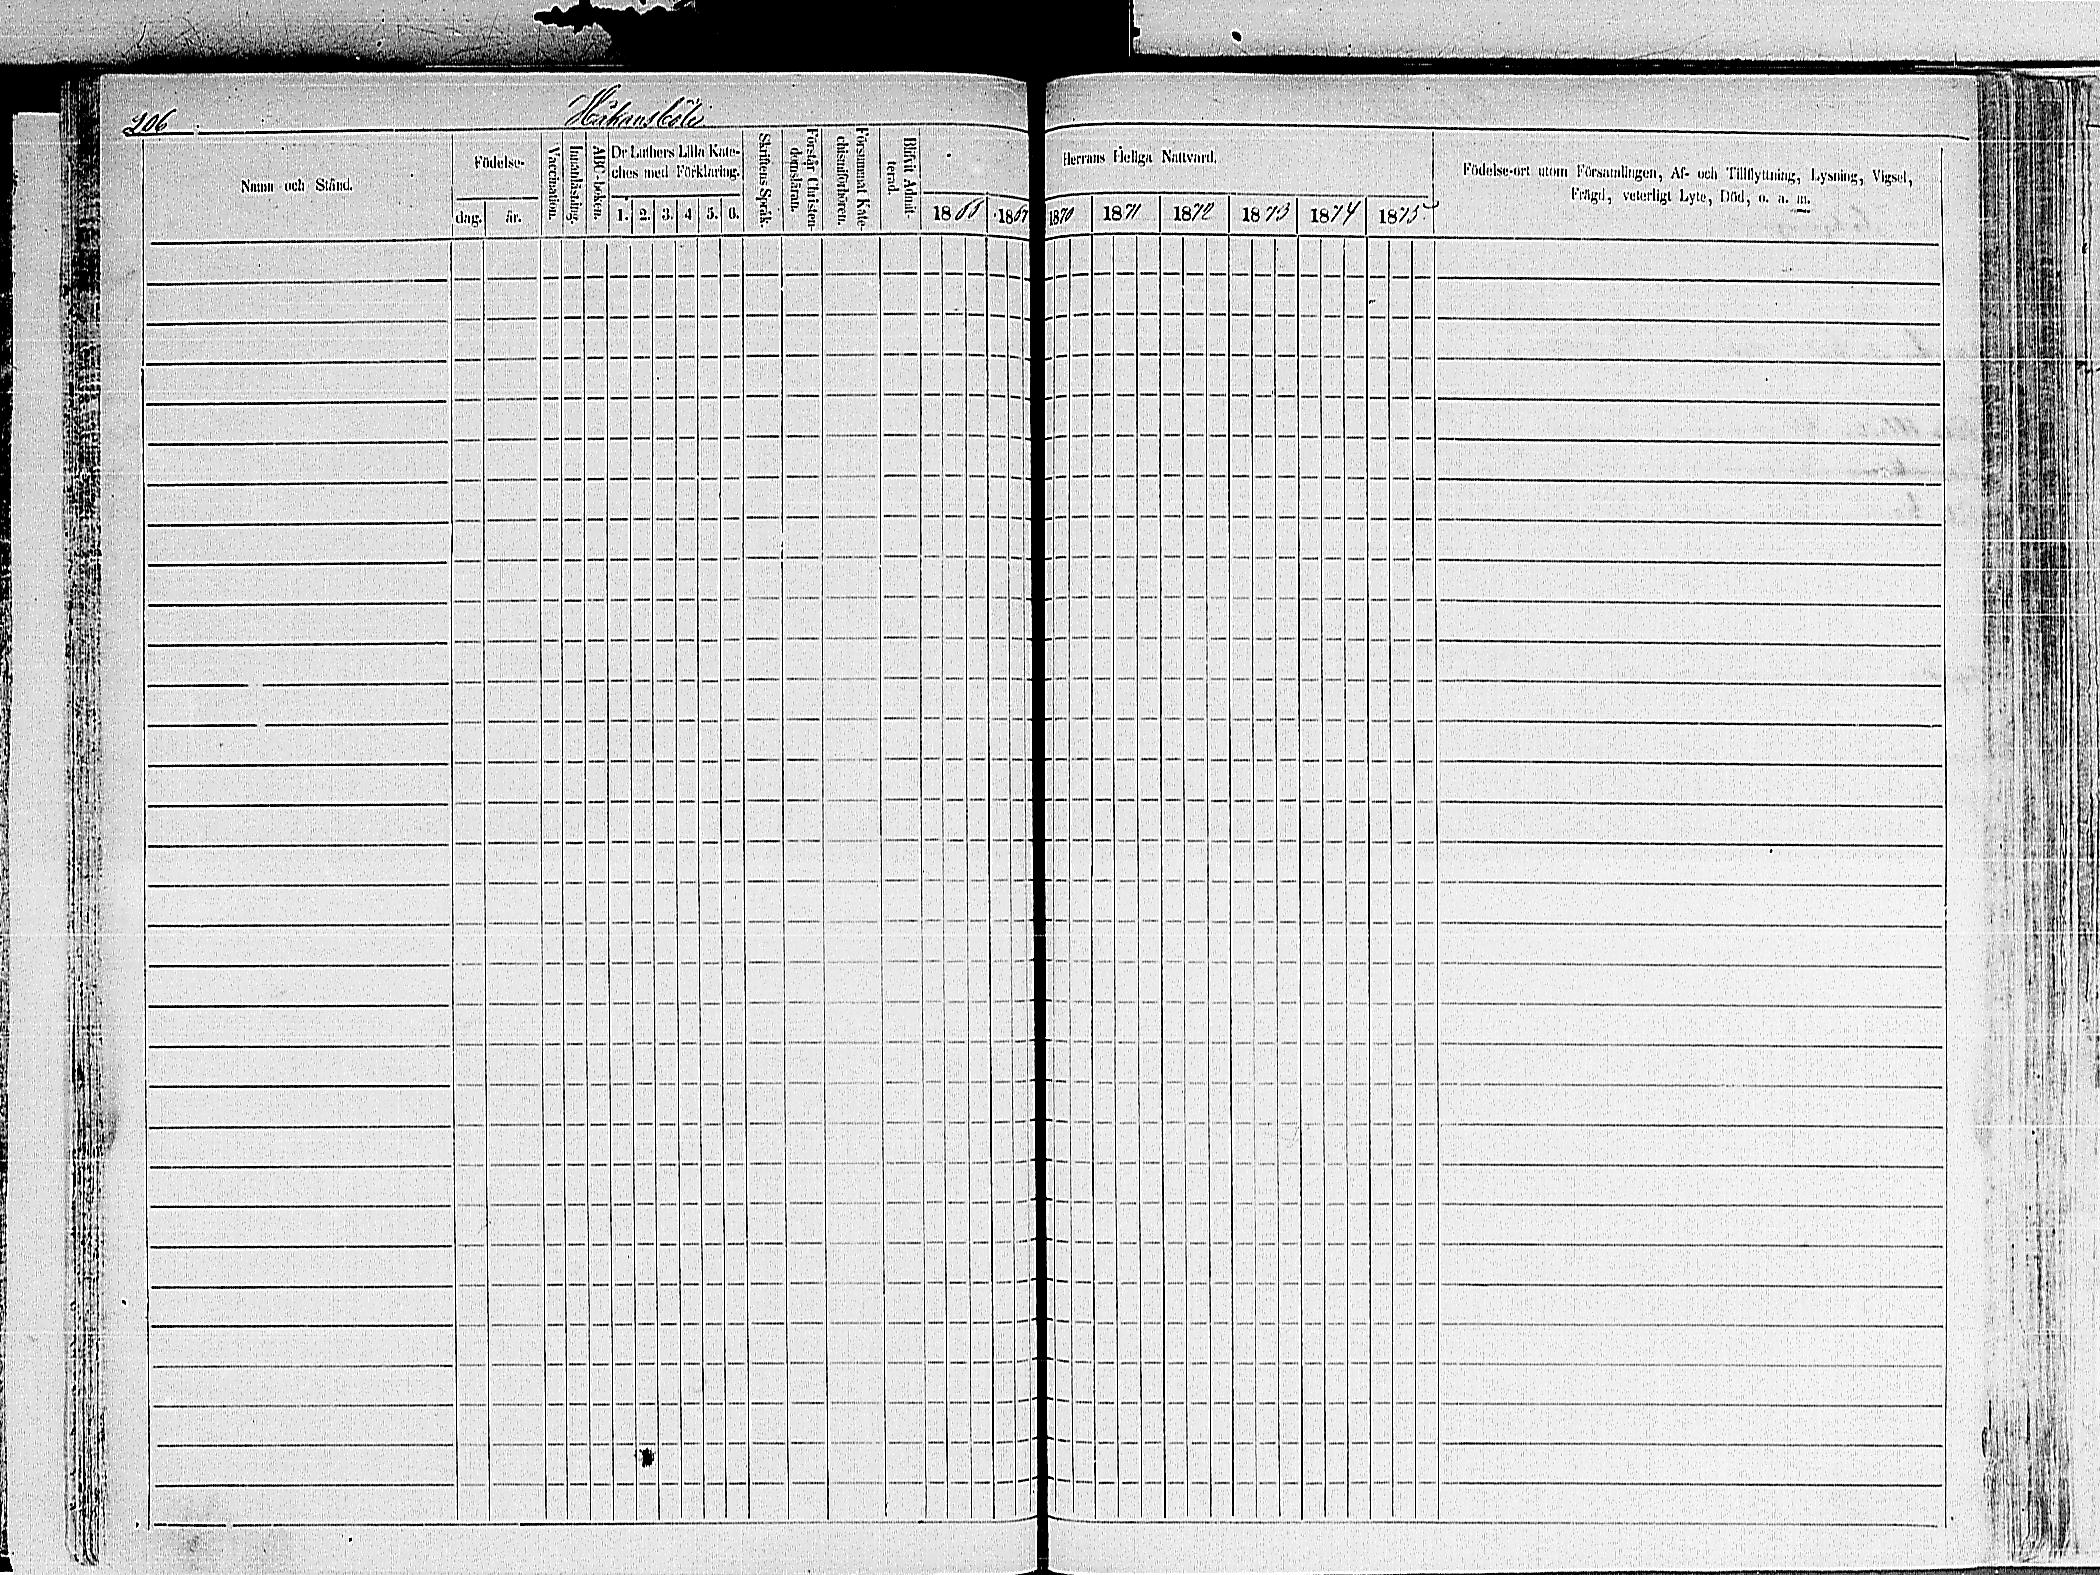 206 Håkansböle
Namn och Stånd.
Födelse-
dag. år.
Vaccination.
Innanläsning.
ABC-boken.
Dr Luthers Lilla Kate-
ches med Förklaring.
1. 2. 3. 4 5. 6.
Skriftens Språk.
Förstår Christen-
domsläran.
Försummat Kate-
chismiförhören.
Blifvit Admit-
terad.
Herrans Heliga Nattvard.
1870 1871 1872 1873 1874 1875
Födelse-ort utom Församlingen, Af- och Tillflyttning, Lysning, Vigsel,
Frägd, veterligt Lyte, Död, o. a. m.